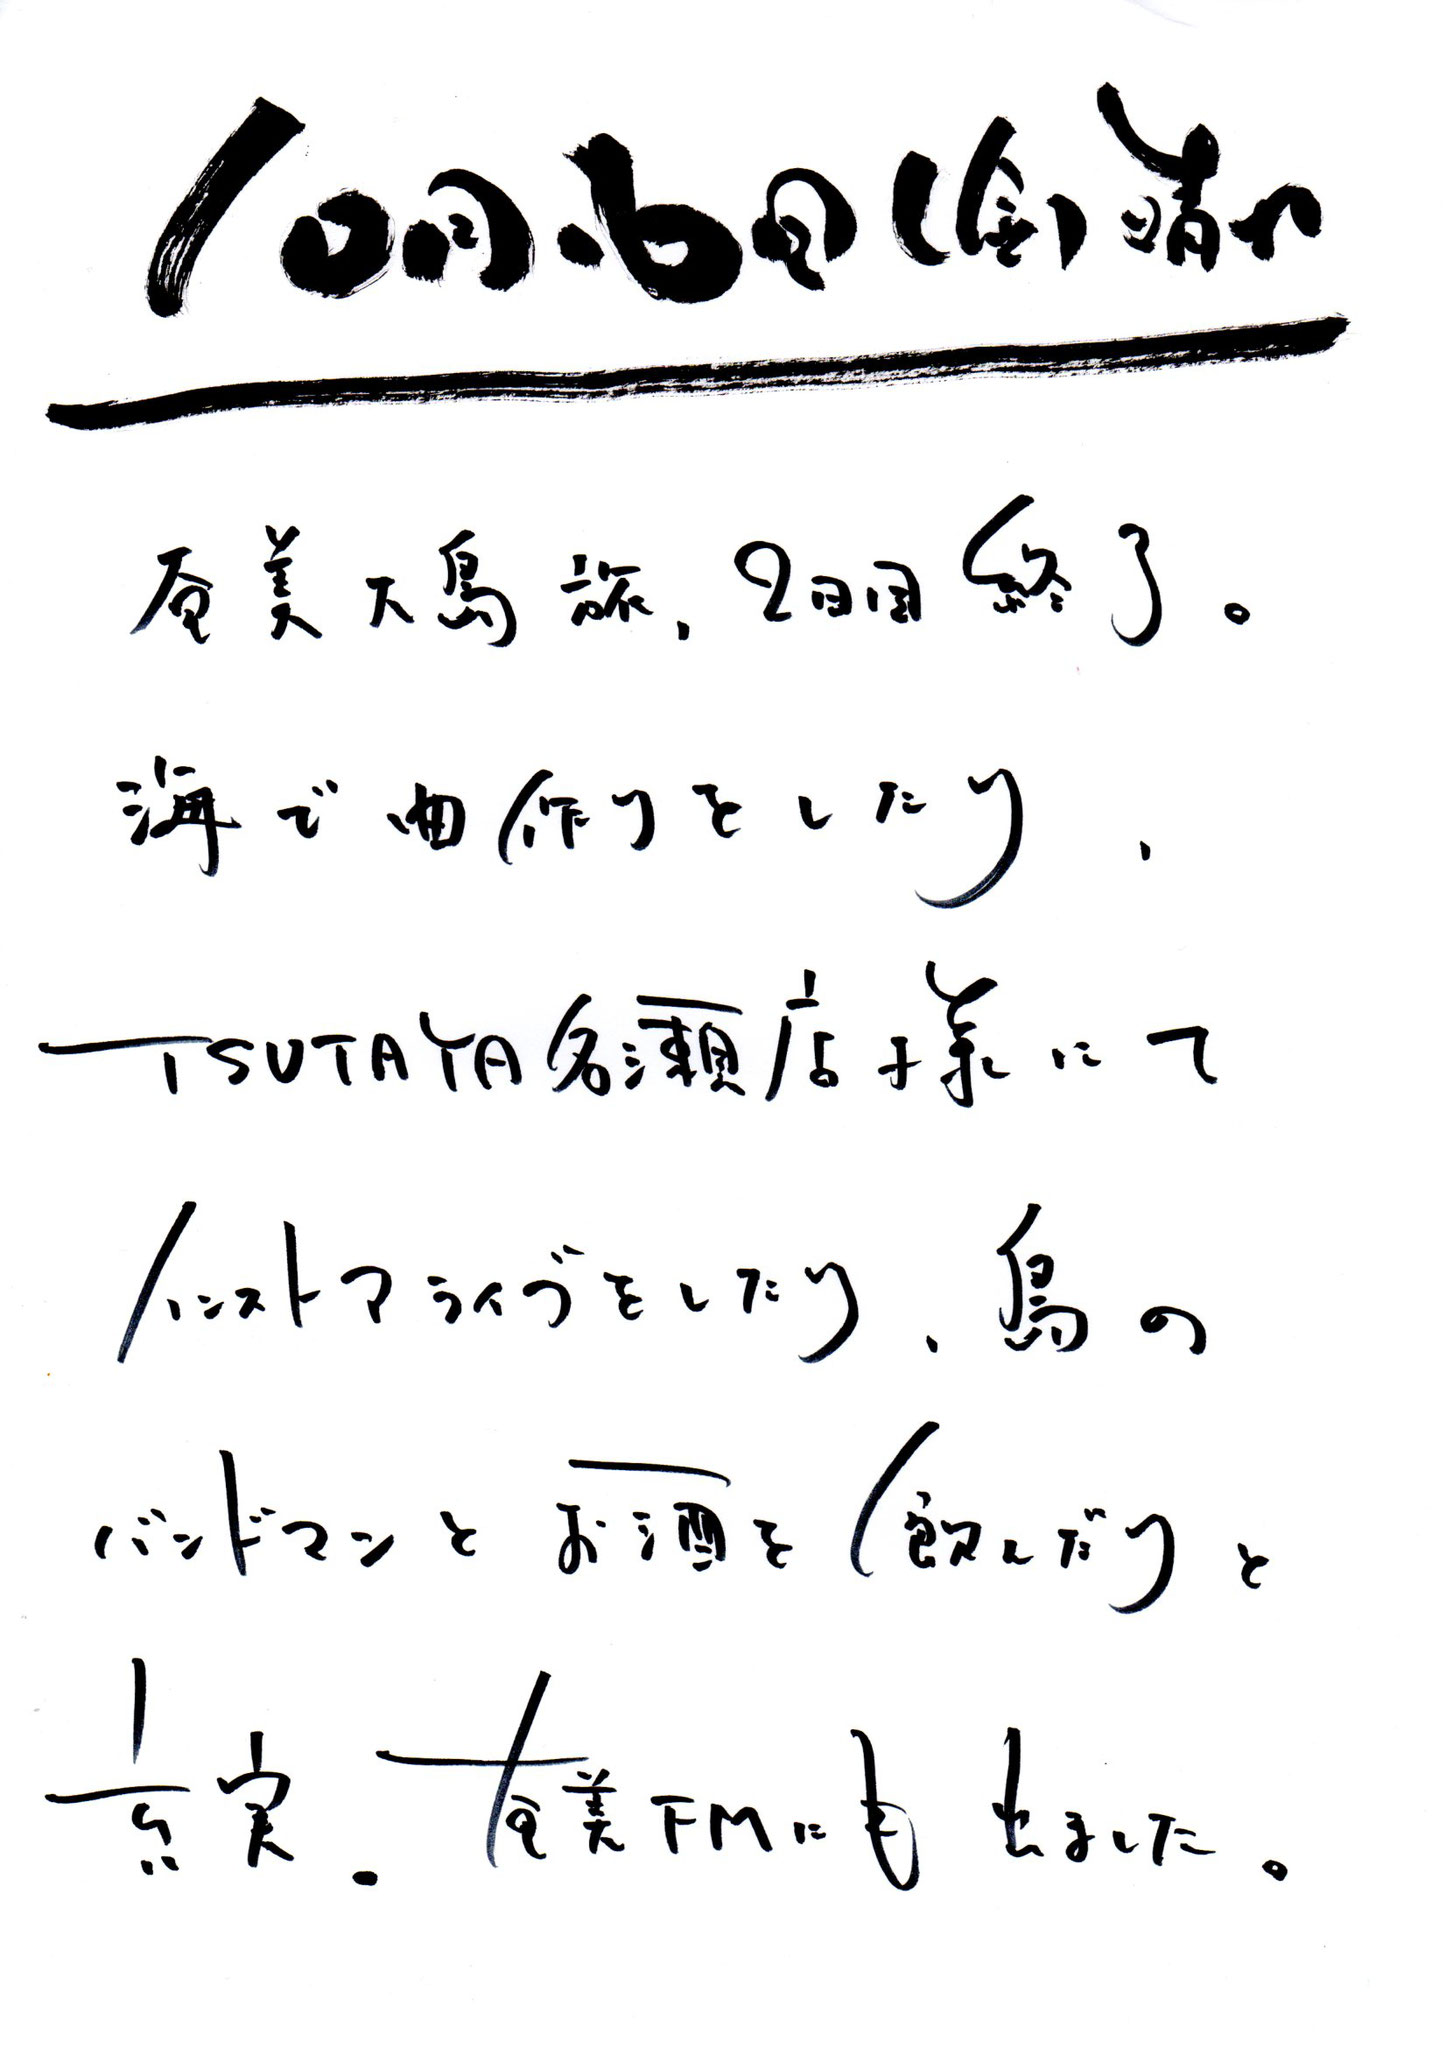 10月6日(金)晴れ
奄美大島旅、2日目終了。
海で曲作りをしたり、
TSUTAYA名瀬店様にて
インストアライブをしたり、島の
バンドマンとお酒を飲んだりと
充実。奄美FMにも出ました。